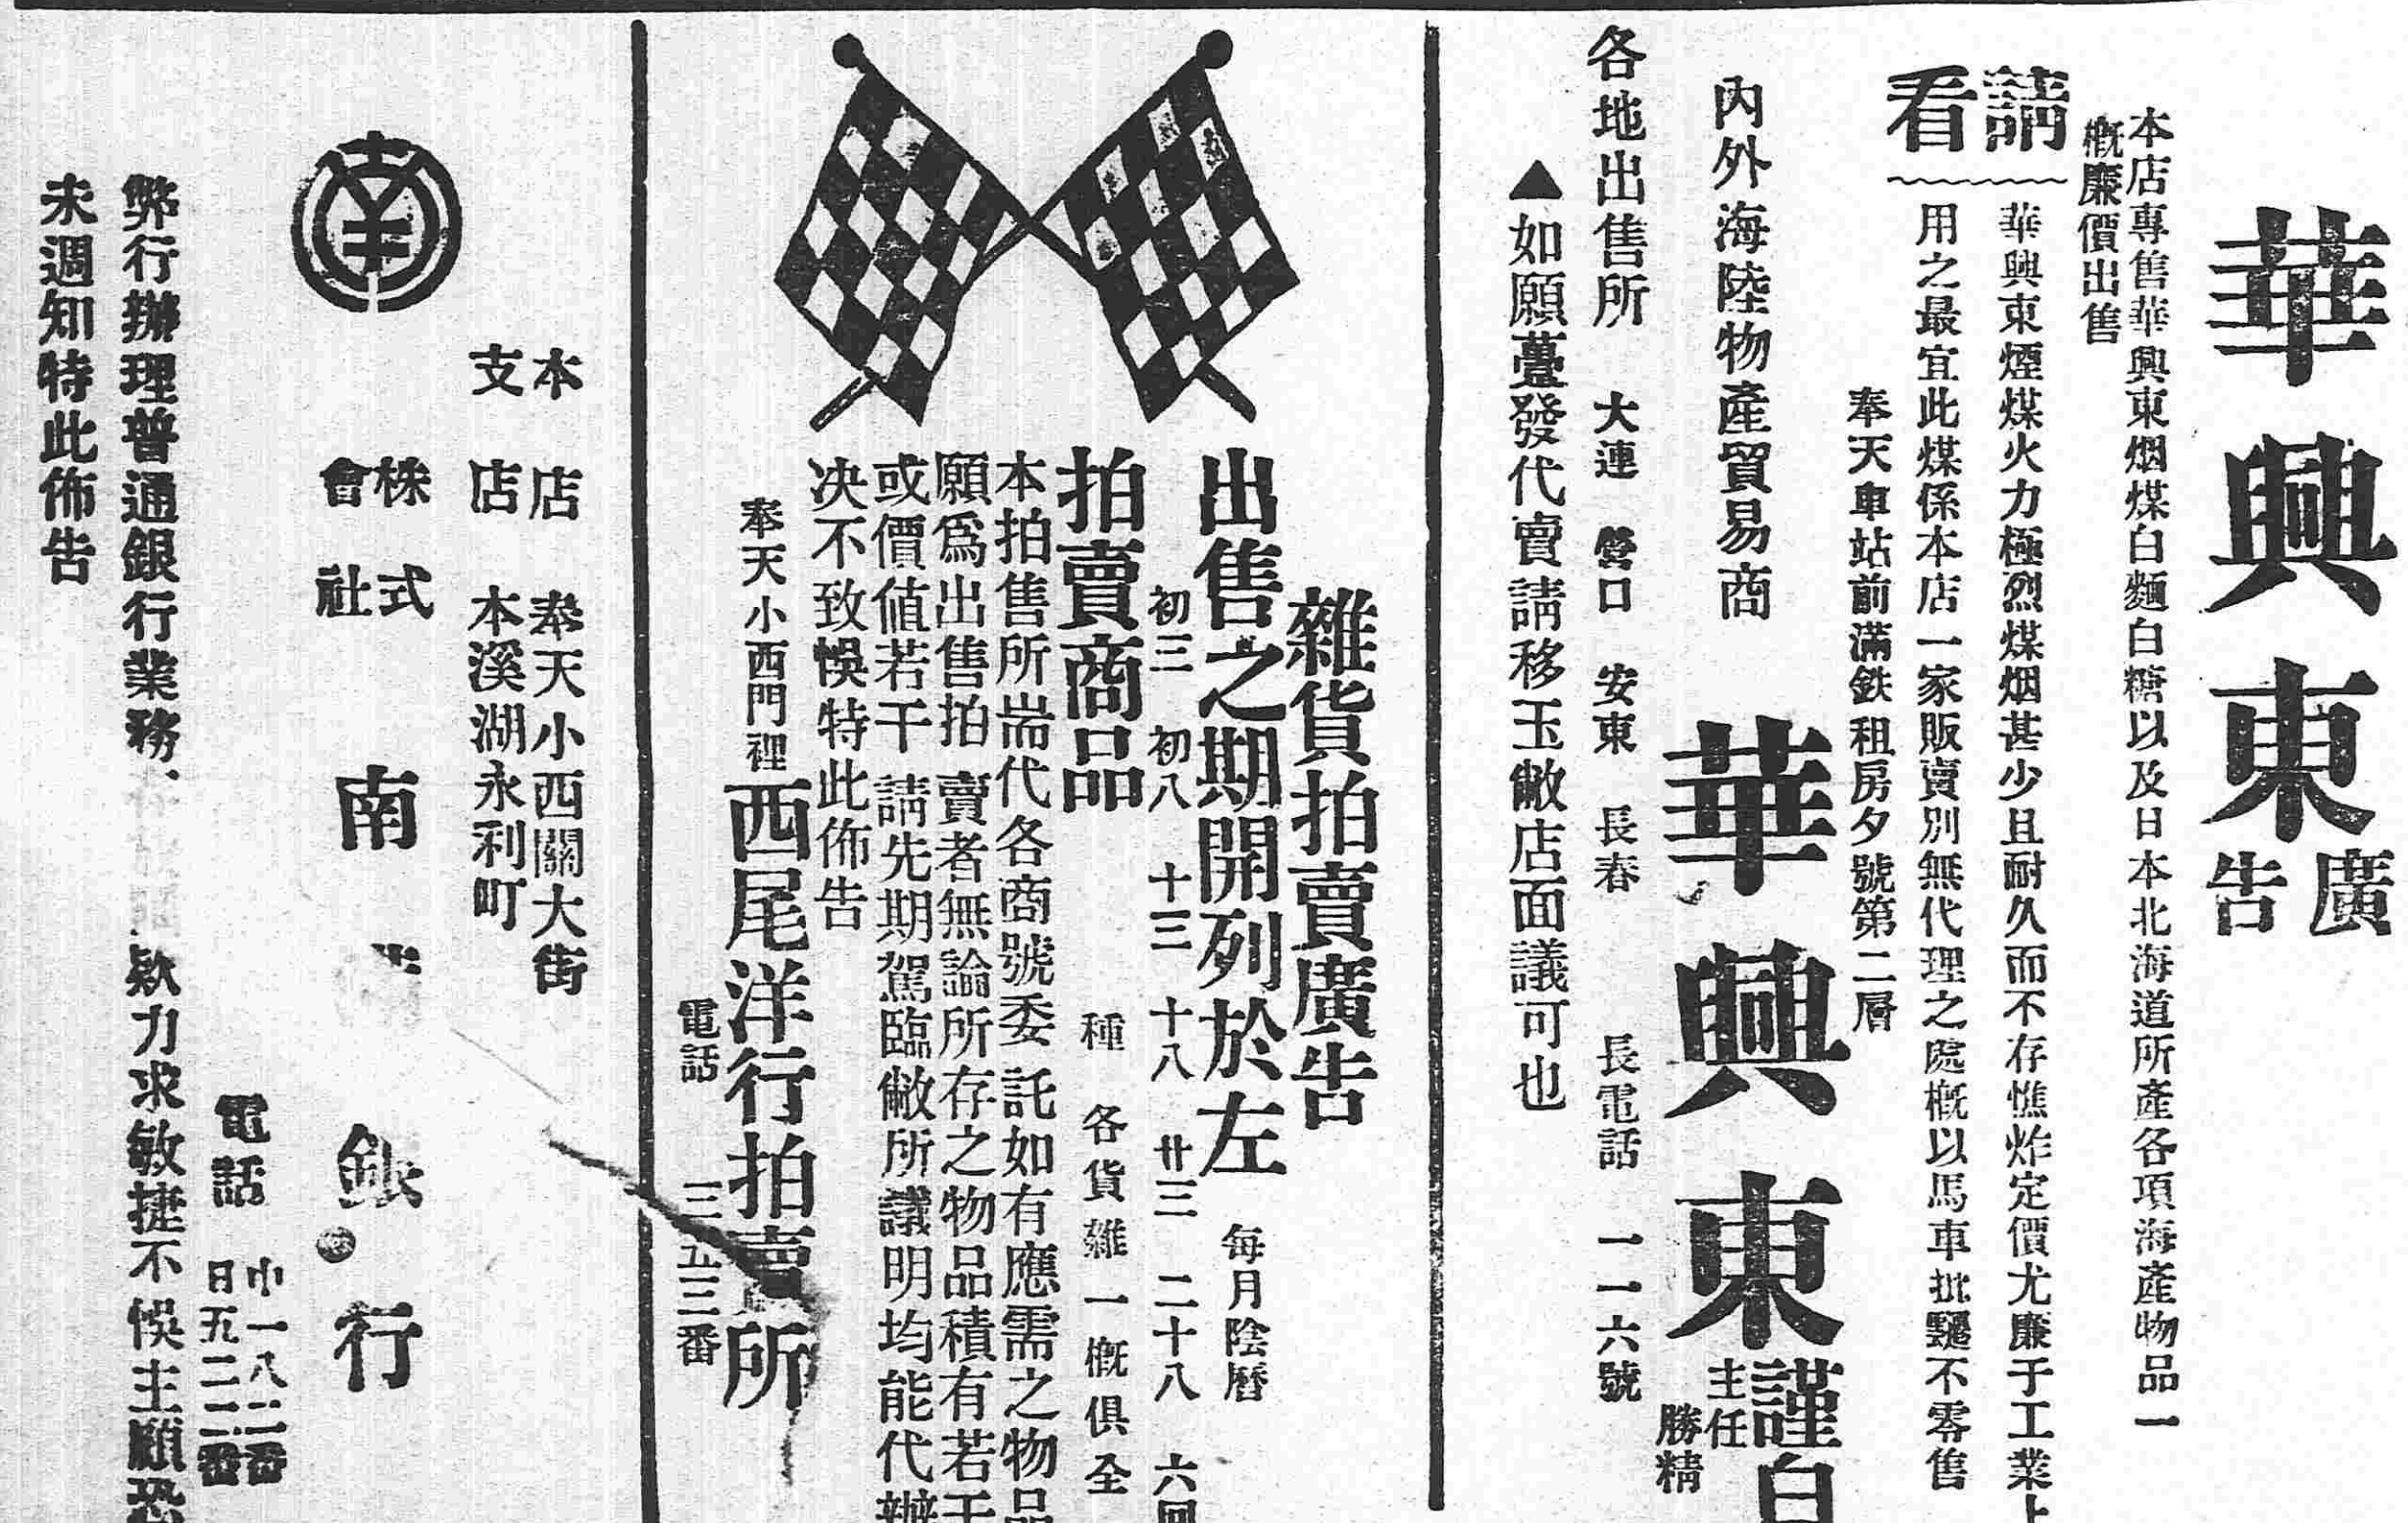 華興東
廣告
本店專售華興東烟煤白麵白糖以及日本北海道所產各項海產物品一
概廉價出售
請看
華興東煙煤火力極烈煤烟甚少且耐久而不存憔炸定價尤廉于工業上
用之最宜此煤係本店一家販賣別無代理之處概以馬車批躉不零售
奉天車站前滿鉄租房夕號第二層
內外海陸物產貿易商
華興東謹白
主任
勝精
各地出售所 大連 營口 安東 長春 長電話 一一六號
▲如願躉發代賣請移玉敝店面議可也
雜貨拍賣廣告
出售之期開列於左 每月陰曆
初三 初八 十三 十八 廿三 二十八 六回
拍賣商品 種各貨雜一概俱全
本拍售所耑代各商號委託如有應需之物品
願爲出售拍賣者無論所存之物品積有若干
或價値若干請先期駕臨敝所議明均能代辦
决不致悞特此佈告
奉天小西門裡 西尾洋行拍賣所
電話 三五三番
本店 奉天小西關大街
支店 本溪湖永利町
株式會社 南 銀行
電話 一八二番
日五二二番
弊行辦理普通銀行業務 欵力求敏捷不悞主顧恐
未週知特此佈告